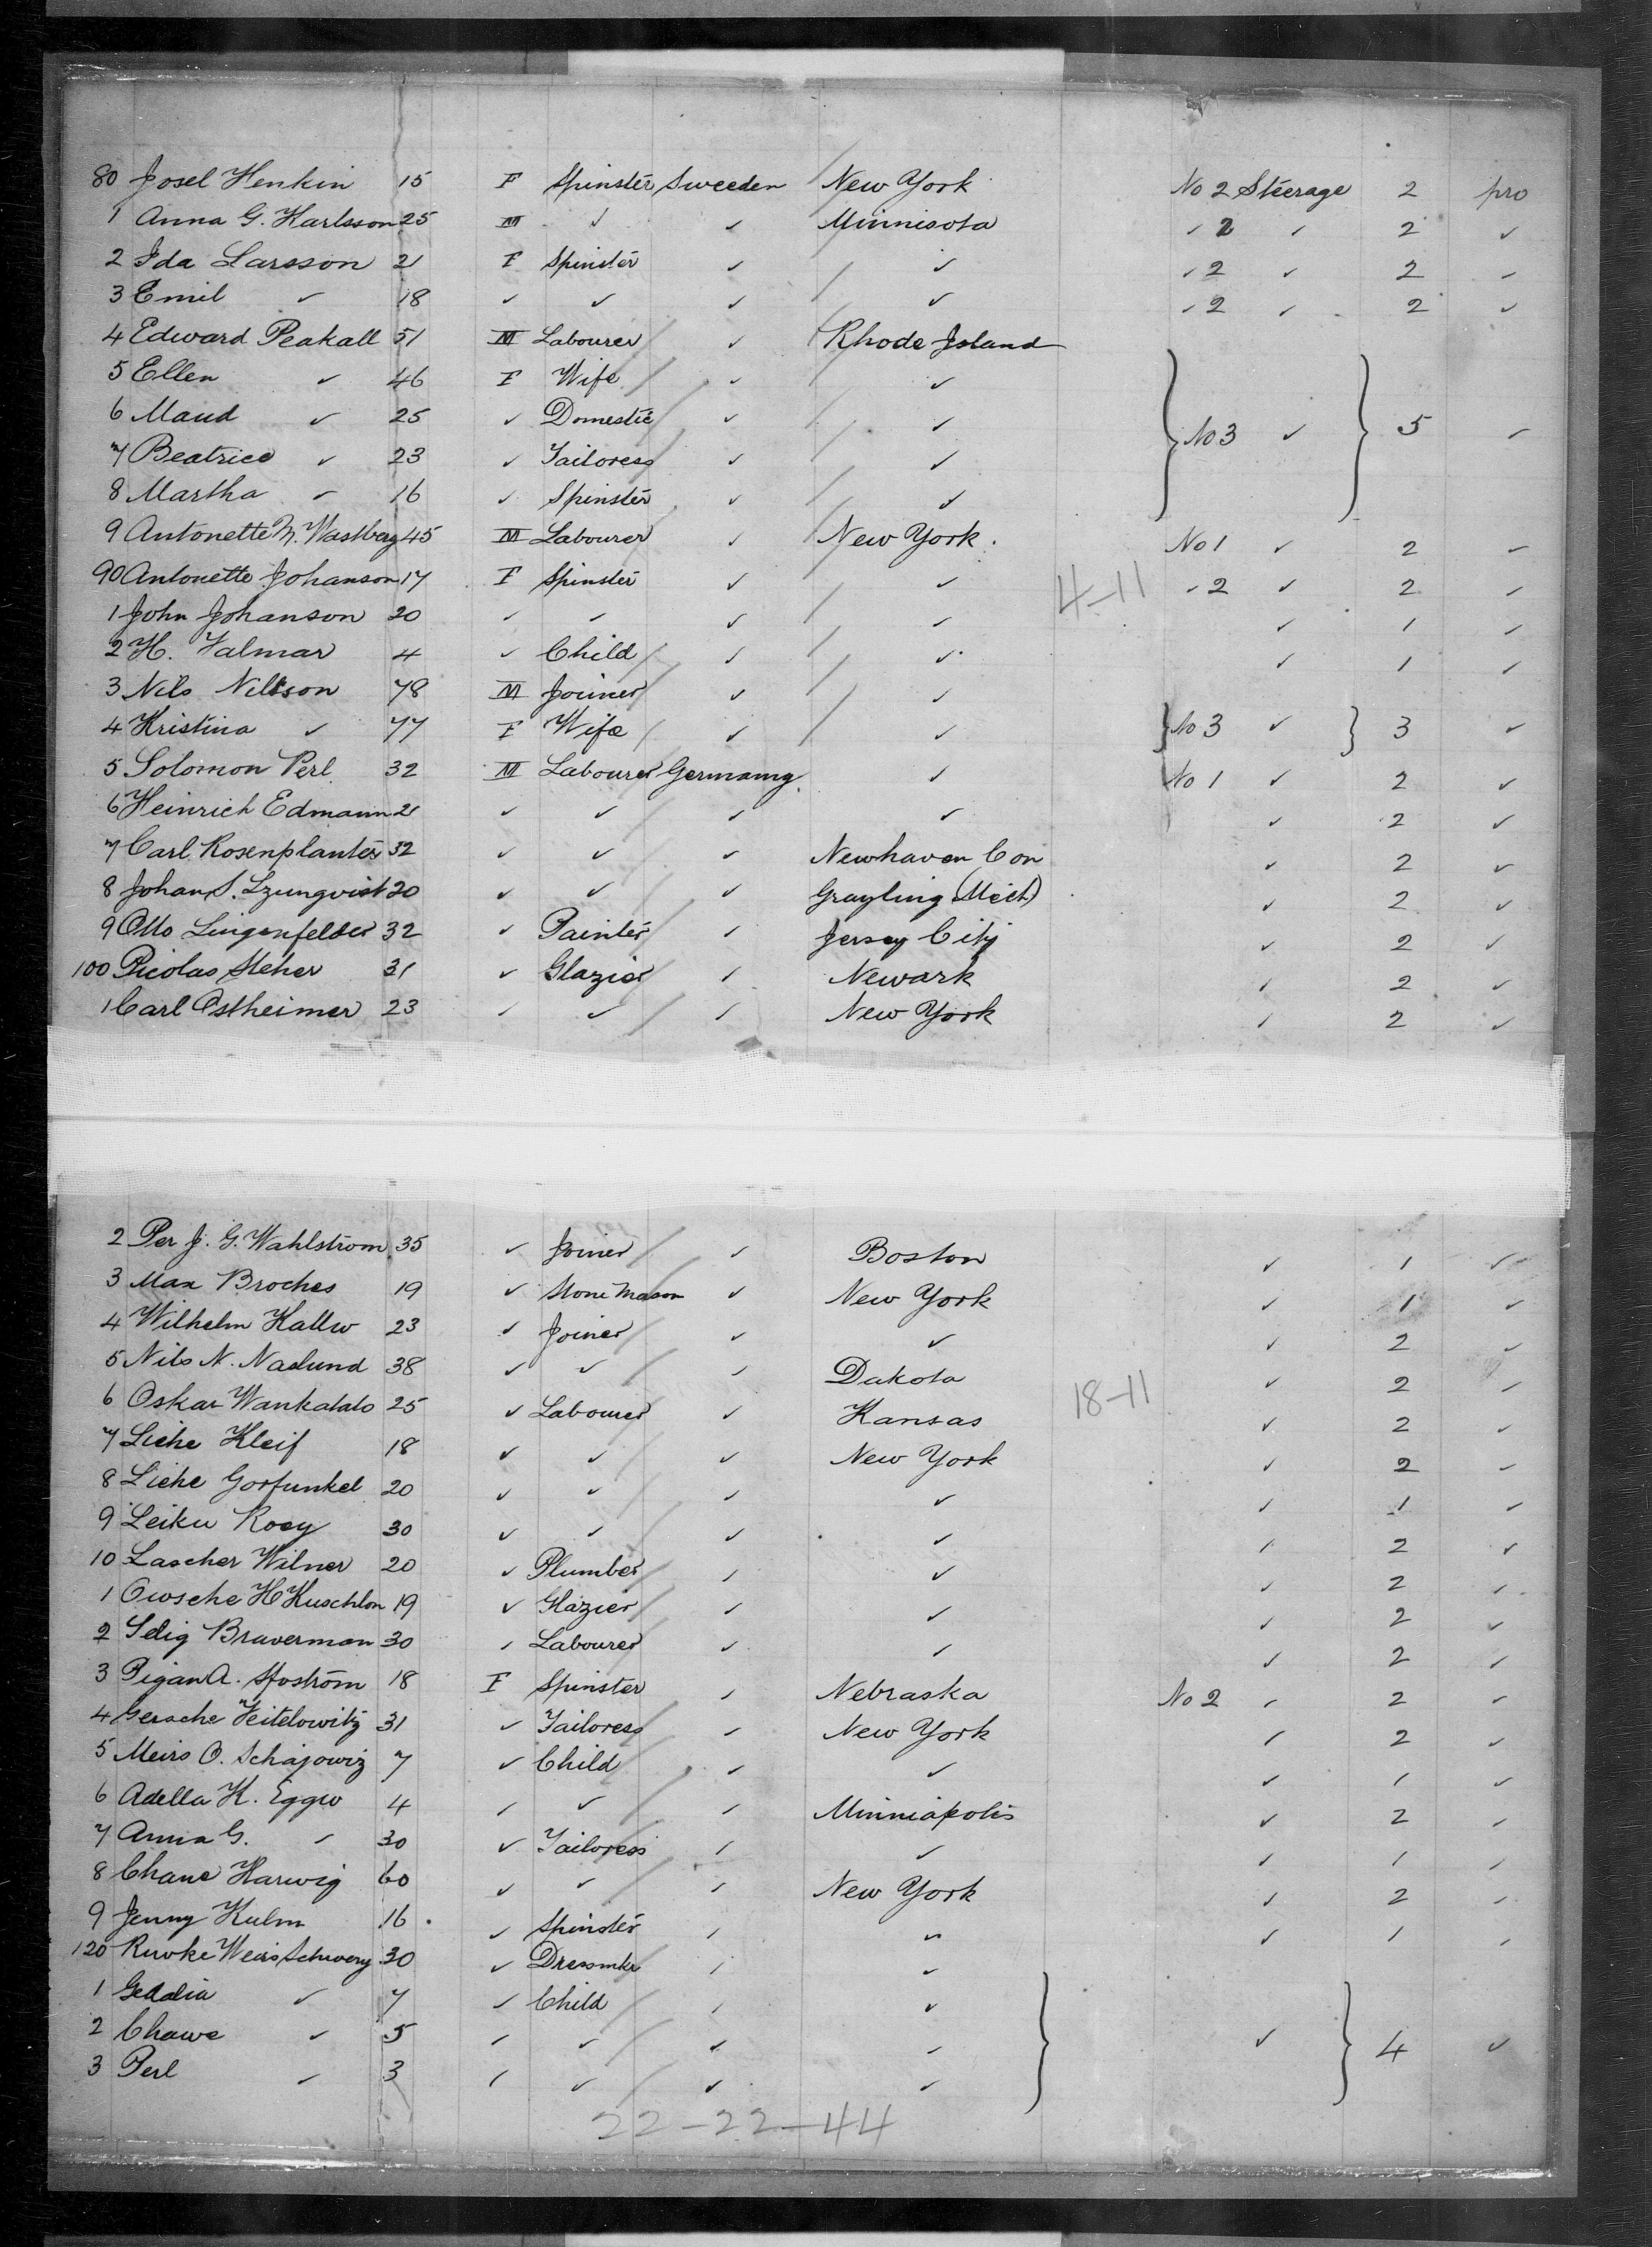 80 Josel Henkin 15 F Spinster Sweeden New York No 2 Steerage 2 pro
1 Anna G. Karlsson 25 M ✓ ✓ Minnisota ✓ 2 ✓ 2 ✓
2 Ida Larsson 21 F Spinster ✓ ✓ ✓ 2 ✓ 2 ✓
3 Emil ✓ 18 ✓ ✓ ✓ ✓ ✓ 2 ✓ 2 ✓
4 Edward Peakall 51 M Labourer ✓ Rhode Island
5 Ellen ✓ 46 F Wife ✓ ✓
6 Maud ✓ 25 ✓ Domestic ✓ ✓ No 3 ✓ 5 ✓
7 Beatrice ✓ 23 ✓ Tailoress ✓ ✓
8 Martha ✓ 16 ✓ Spinster ✓ ✓
9 Antonette M. Wastberg 45 M Labourer ✓ New York. No 1 ✓ 2 ✓
90 Antonette Johanson 17 F Spinster ✓ ✓ 4-11 ✓ 2 ✓ 2 ✓
1 John Johanson 20 ✓ ✓ ✓ ✓ ✓ 1 ✓
2 H. Valmar 4 ✓ Child ✓ ✓ ✓ 1 ✓
3 Nils Nilsson 78 M Joiner ✓ ✓
4 Kristina ✓ 77 F Wife ✓ ✓ No 3 ✓ 3 ✓
5 Solomon Perl 32 M Labourer Germanny ✓ No 1 ✓ 2 ✓
6 Heinrich Edmann 21 ✓ ✓ ✓ ✓ ✓ 2 ✓
7 Carl Rosenplanter 32 ✓ ✓ ✓ Newhaven Con ✓ 2 ✓
8 Johan S. Lzungvist 20 ✓ ✓ ✓ Grayling (Mich) ✓ 2 ✓
9 Otto Lingenfelder 32 ✓ Painter ✓ Jersey City ✓ 2 ✓
100 Picolas Steher 31 ✓ Glazier ✓ Newark ✓ 2 ✓
1 Carl Ostheimer 23 ✓ ✓ ✓ New York ✓ 2 ✓
2 Per J. G. Wahlstrom 35 ✓ Joiner ✓ Boston ✓ 1 ✓
3 Max Broches 19 ✓ Stone Mason ✓ New York ✓ 1 ✓
4 Wilhelm Kallw 23 ✓ Joiner ✓ ✓ ✓ 2 ✓
5 Nils N. Naslund 38 ✓ ✓ ✓ Dakota ✓ 2 ✓
6 Oskar Wankatalo 25 ✓ Labourer ✓ Kansas 18-11 ✓ 2 ✓
7 Liehe Kleif 18 ✓ ✓ ✓ New York ✓ 2 ✓
8 Liehe Gorfunkel 20 ✓ ✓ ✓ ✓ ✓ 1 ✓
9 Leiku Rosy 30 ✓ ✓ ✓ ✓ ✓ 2 ✓
10 Lascher Wilner 20 ✓ Plumber ✓ ✓ ✓ 2 ✓
1 Owsche H Kuschlon 19 ✓ Glazier ✓ ✓ ✓ 2 ✓
2 Selig Braverman 30 ✓ Labourer ✓ ✓ ✓ 2 ✓
3 Pigan A. Sfoström 18 F Spinster ✓ Nebraska No 2 ✓ 2 ✓
4 Gersche Veitelowitz 31 ✓ Tailoress ✓ New York ✓ 2 ✓
5 Meiro O. Schajowiz 7 ✓ Child ✓ ✓ ✓ 1 ✓
6 Adella K. Eggw 4 ✓ ✓ ✓ Minniapolis ✓ 2 ✓
7 Anna G. ✓ 30 ✓ Tailoress ✓ ✓ ✓ 1 ✓
8 Chane Harwig 60 ✓ ✓ ✓ New York ✓ 2 ✓
9 Jenny Kulm 16 ✓ Spinster ✓ ✓ ✓ 1 ✓
120 Ruwke Weis Schwery 30 ✓ Dressmkr ✓ ✓
1 Geddia ✓ 7 ✓ Child ✓ ✓
2 Chawe ✓ 5 ✓ ✓ ✓ ✓ ✓ 4 ✓
3 Perl ✓ 3 ✓ ✓ ✓ ✓
22-22-44